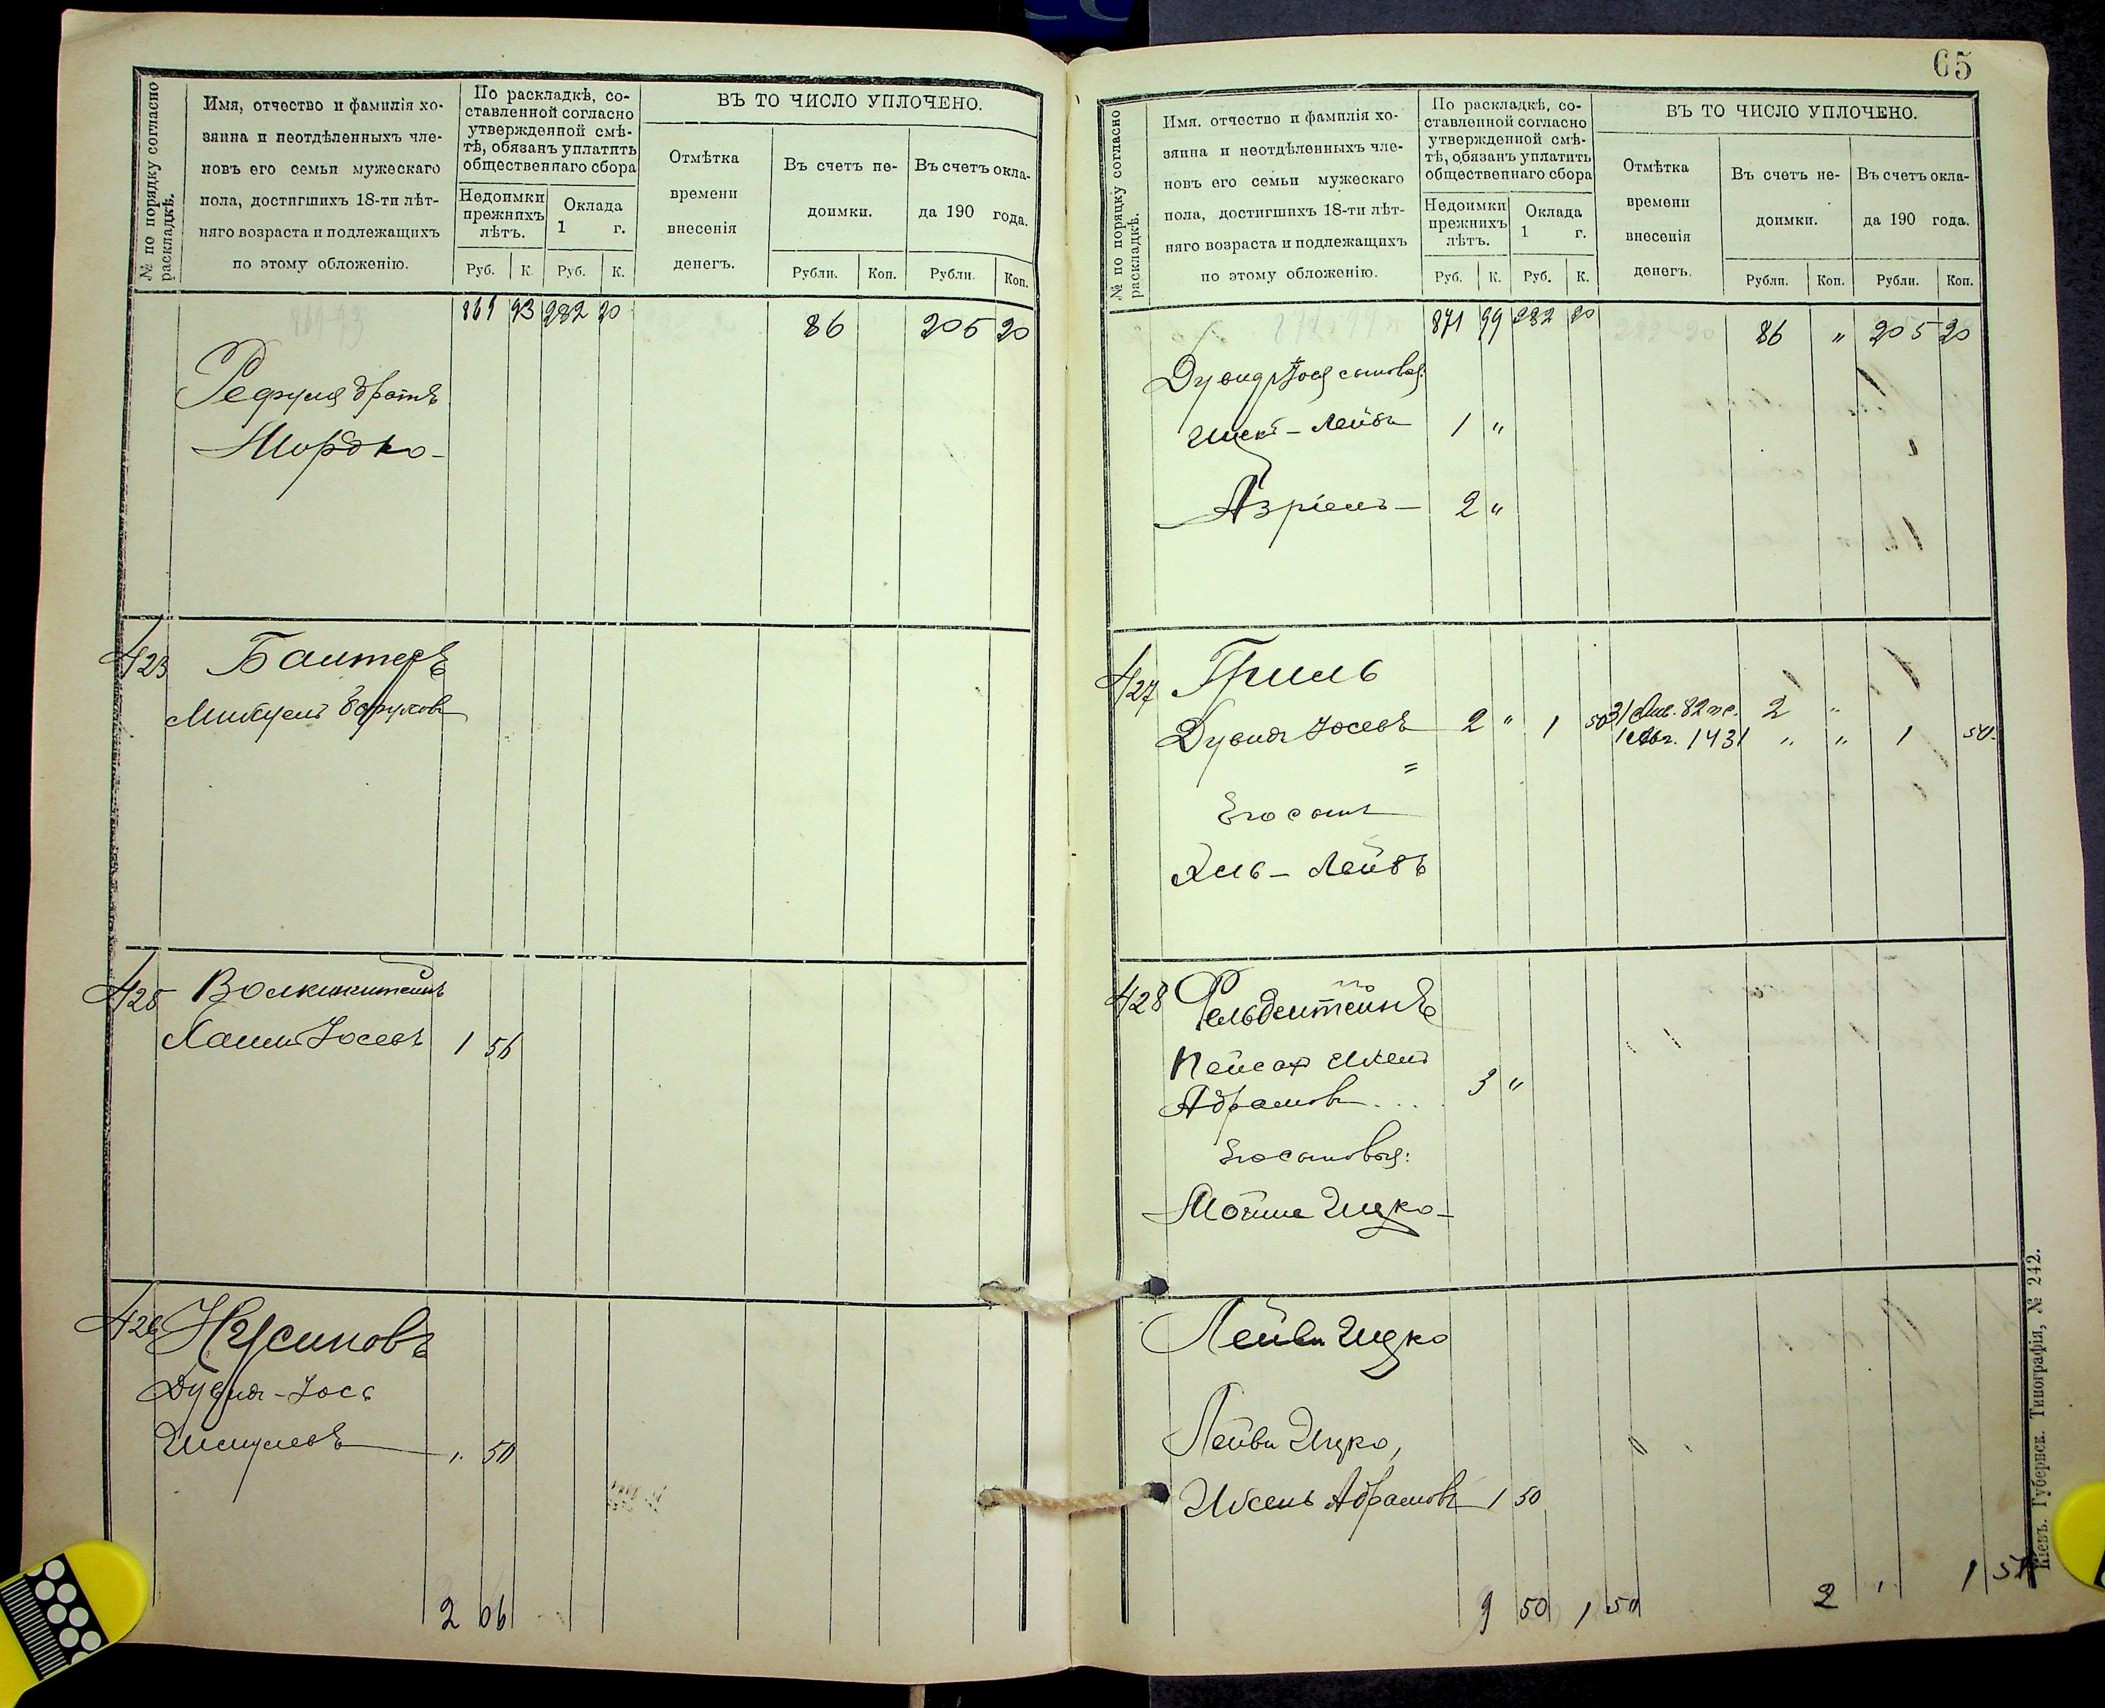 № по порядку согласно раскладкѣ.
Имя, отчество и фамилія хо-
зяина и неотдѣленныхъ чле-
новъ его семьи мужескаго
пола, достигшихъ 18-ти лѣт-
няго возраста и подлежащихъ
по этому обложенію.
По раскладкѣ, со-
ставленной согласно
утвержденной смѣ-
тѣ, обязанъ уплатить
общественнаго сбора
Недоимки
прежнихъ
лѣтъ.
Оклада
1 г.
Руб. К. Руб. К.
ВЪ ТО ЧИСЛО УПЛОЧЕНО.
Отмѣтка
времени
внесенія
денегъ.
Въ счетъ не-
доимки.
Рубли. Коп.
Въ счетъ окла-
да 190 года.
Рубли. Коп.
869 93 282 20 86 205 20
братъ
Мордко
423 Балтеръ
425
Іосевъ 1 56
426 Нусиновъ
Дувидъ-Іось
" 50
2 06
65
№ по порядку согласно раскладкѣ.
Имя, отчество и фамилія хо-
зяина и неотдѣленныхъ чле-
новъ его семьи мужескаго
пола, достигшихъ 18-ти лѣт-
няго возраста и подлежащихъ
по этому обложенію.
По раскладкѣ, со-
ставленной согласно
утвержденной смѣ-
тѣ, обязанъ уплатить
общественнаго сбора
Недоимки
прежнихъ
лѣтъ.
Оклада
1 г.
Руб. К. Руб. К.
ВЪ ТО ЧИСЛО УПЛОЧЕНО.
Отмѣтка
времени
внесенія
денегъ.
Въ счетъ не-
доимки.
Рубли. Коп.
Въ счетъ окла-
да 190 года.
Рубли. Коп.
871 99 282 20 86 " 205 20
Дувидъ Іося сыновья:
Лейбъ 1 "
Азріель 2 "
427 Гриль
Дувидъ Іосевъ 2 " 1 50 31 82 2 "
1431 " " 1 50
Его сынъ
Лейбъ
428 Фельдштейнъ
Пейсахъ
Абрамовъ 3 "
Его сыновья:
Мойше Ицко
Лейви Ицко
Лейви Ицко,
Абрамовъ 1 50
9 50 1 50 2 " 1 50
Кіевъ. Губернск. Типографія, № 242.